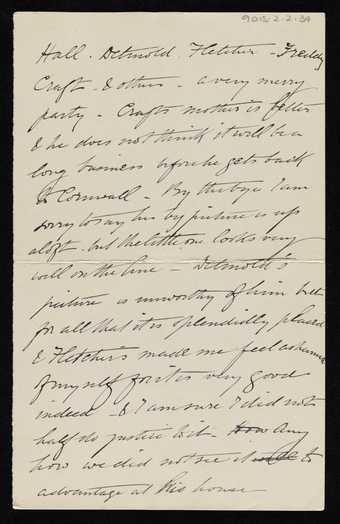 9015/2-2-34
Hall. Detmold. Fletcher - Freddy
Craft - & others - a very merry
party - Crafts mother is better
& he does not think it will be a
long business before he gets back
to Cornwall - By the bye I am
sorry to say his big picture is up
aloft - but the little one looks very
well on the line - Detmold's
picture is unworthy of him but
for all that it is splendidly placed
& Fletcher's made me feel ashamed
of myself for it is very good
indeed - & I am sure I did not
half do justice to it - How Any
how we did not see it to
advantage at his house